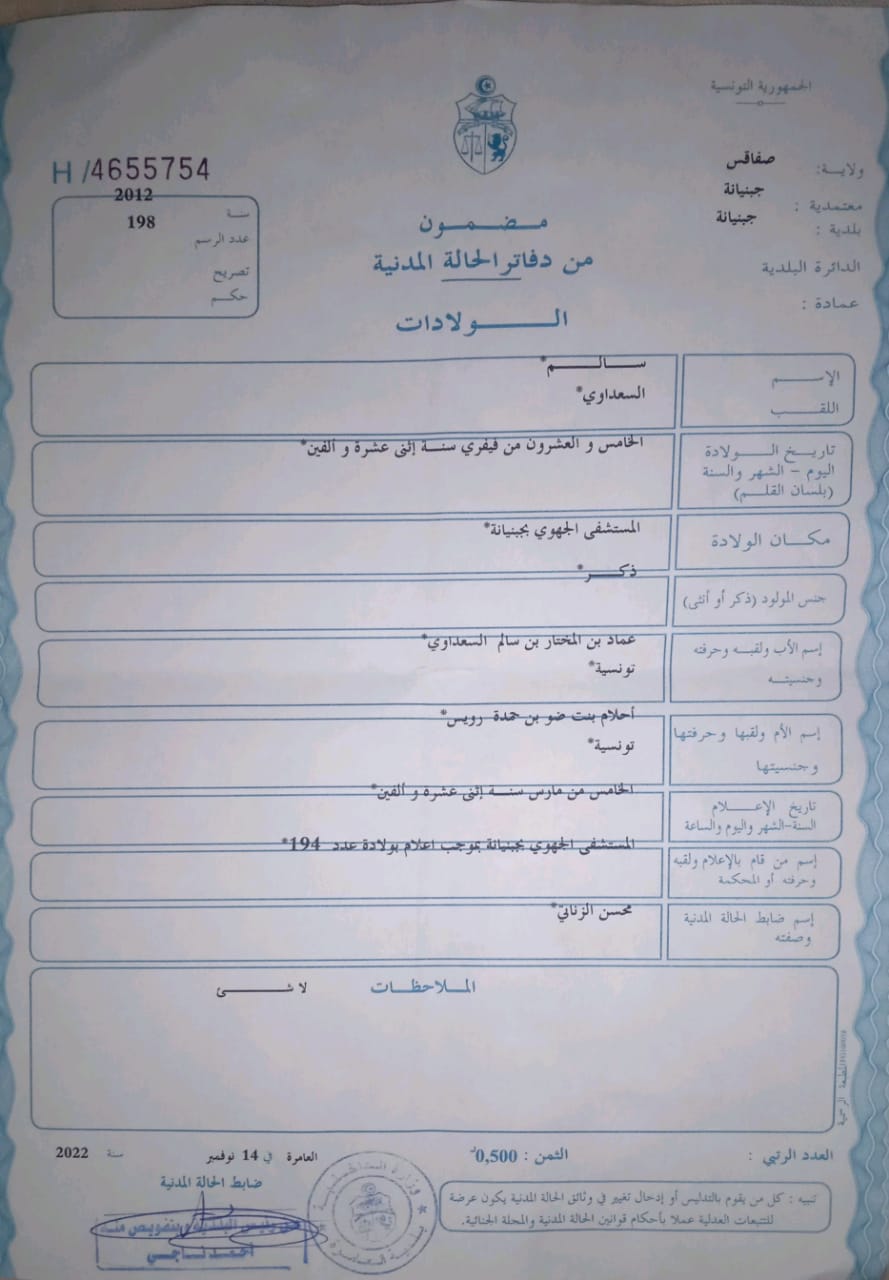 الجمهورية التونسية
H/4655754
ولاية: صفاقس
معتمدية : جبنيانة
بلدية : جبنيانة
الدائرة البلدية
عمادة :
سنة 2012
عدد الرسم 198
تصريح
حكم
مضمون
من دفاتر الحالة المدنية
الولادات
الإسم سالم*
اللقب السعداوي*
تاريخ الولادة الخامس و العشرون من فيفري سنة إثنى عشرة و ألفين*
اليوم - الشهر والسنة
(بلسان القلم)
مكان الولادة المستشفى الجهوي بجبنيانة*
جنس المولود (ذكر أو أنثى) ذكر*
إسم الأب ولقبه وحرفته عماد بن المختار بن سالم السعداوي*
وجنسيته تونسية*
إسم الأم ولقبها وحرفتها أحلام بنت ضو بن حمدة رويس*
وجنسيتها تونسية*
تاريخ الإعلام الخامس من مارس سنة إثنى عشرة و ألفين*
السنة-الشهر واليوم والساعة
إسم من قام بالإعلام ولقبه المستشفى الجهوي بجبنيانة بموجب اعلام بولادة عدد 194*
وحرفته أو المحكمة
إسم ضابط الحالة المدنية محسن الزناتي*
وصفته
الملاحظات لا شئ
المطبعة الرسمية
العدد الرتبي :
الثمن : 0,500د
العامرة في 14 نوفمبر سنة 2022
ضابط الحالة المدنية
تنبيه : كل من يقوم بالتدليس أو إدخال تغيير في وثائق الحالة المدنية يكون عرضة
للتتبعات العدلية عملا بأحكام قوانين الحالة المدنية والمجلة الجنائية.
وزارة الداخلية
بلدية العامرة
رئيس البلدية وبتفويض منه
أحمد ناجي